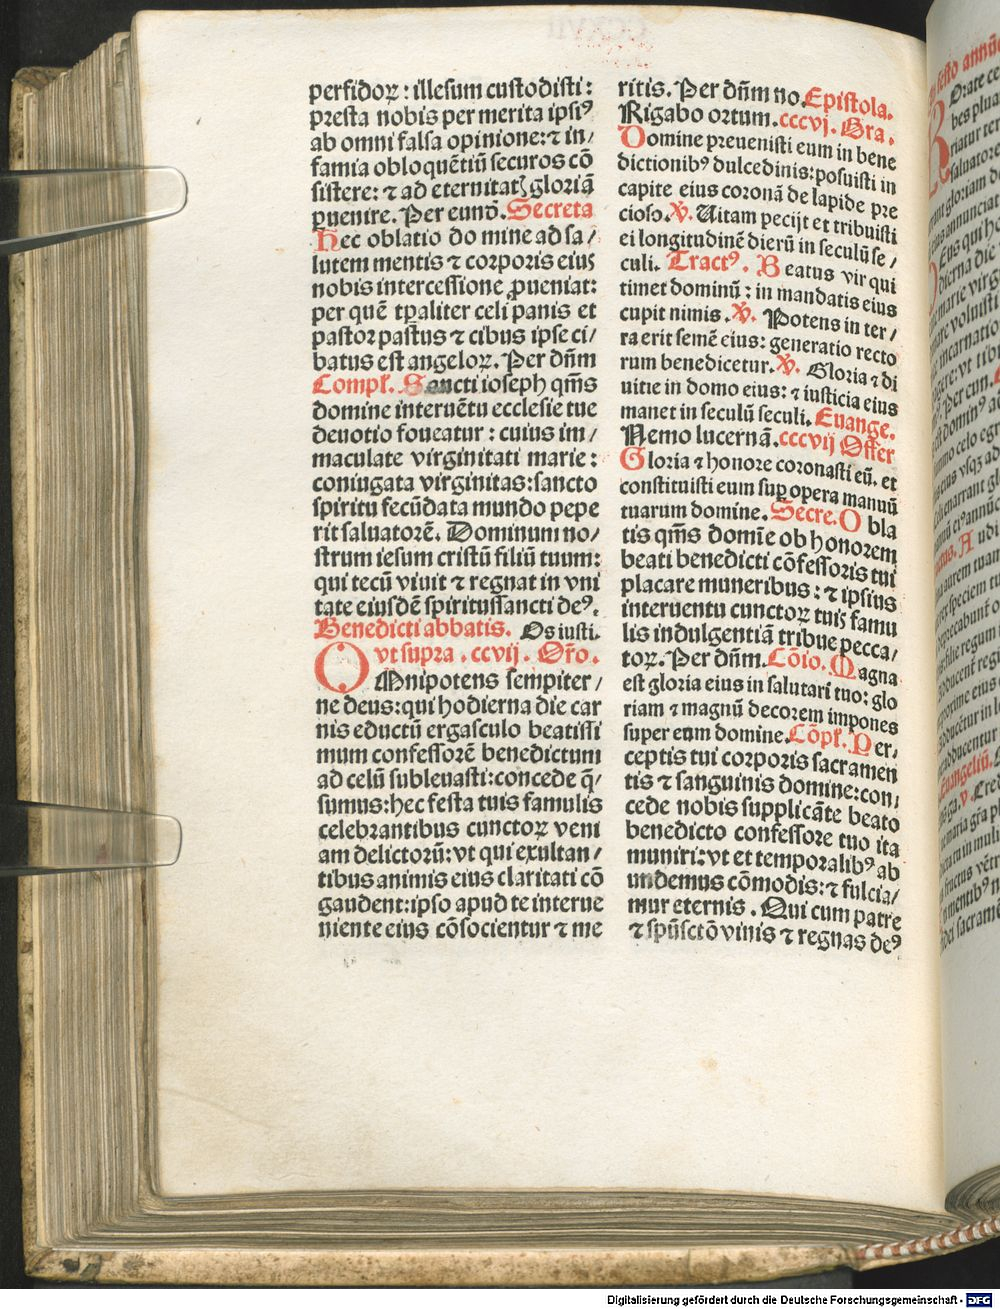 perfidoꝝ : illesum custodisti :
presta nobis per merita ipsiꝰ
ab omni falsa opinione: ⁊ in/
famia obloquētiū securos cō
sistere: ⁊ ad eternitatꝭ gloriā
ꝑuenire. Per eund̄. Secreta
Hec oblatio do mine ad sa/
lutem mentis ⁊ corporis eius
nobis intercessione ꝓueniat:
per quē tp̄aliter celi panis et
pastor pastus ⁊ cibus ipse ci/
batus est angeloꝝ. Per dn̄m
Compl̄. Sancti ioseph qm̄s
domine interuētu ecclesie tue
deuotio foueatur : cuius im/
maculate virginitati marie :
coniugata virginitas: sancto
spiritu fecūdata mundo pepe
rit saluatorē. Dominum no/
strum iesum cristū filiū tuum:
qui tecū viuit ⁊ regnat in vni
tate eiusdē spiritussancti deꝰ.
Benedicti abbatis. Os iusti.
vt supra . ccvij . Or̄o.
OMnipotens sempiter/
ne deus: qui hodierna die car
nis eductū ergasculo beatissi
mum confessorē benedictum
ad celū subleuasti: concede q̄/
sumus: hec festa tuis famulis
celebrantibus cunctoꝝ veni
am delictorū: vt qui exultan/
tibus animis eius claritati cō
gaudent: ipso apud te interue
niente eius cōsocientur ⁊ me
ritis. Per dn̄m no. Epistola.
Rigabo ortum. cccvj. Gra.
Domine preuenisti eum in bene
dictionibꝰ dulcedinis: posuisti in
capite eius coronā de lapide pre
cioso. V̄. Uitam pecijt et tribuisti
ei longitudinē dierū in seculū se/
culi. Tractꝰ. Beatus vir qui
timet dominū : in mandatis eius
cupit nimis. V̄. Potens in ter/
ra erit semē eius: generatio recto
rum benedicetur. V̄. Gloria ⁊ di
uitie in domo eius: ⁊ iusticia eius
manet in seculū seculi. Euange.
Nemo lucernā. cccvij Offer
Gloria ⁊ honore coronasti eū. et
constituisti eum suꝑ opera manuū
tuarum domine. Secre. Obla
tis qm̄s domīe ob honorem
beati benedicti cōfessoris tui
placare muneribus : ⁊ ipsius
interuentu cunctoꝝ tuis famu
lis indulgentiā tribue pecca/
toꝝ. Per dn̄m. Cōio. Magna
est gloria eius in salutari tuo: glo
riam ⁊ magnū decorem impones
super eum domine. Cōpl̄. Per/
ceptis tui corporis sacramen
tis ⁊ sanguinis domine: con/
cede nobis supplicāte beato
benedicto confessore tuo ita
muniri: vt et temporalibꝰ ab
undemus cōmodis: ⁊ fulcia/
mur eternis . Qui cum patre
⁊ spūsctō viuis ⁊ regnas deꝰ
Digitalisierung gefördert durch die Deutsche Forschungsgemeinschaft - DFG